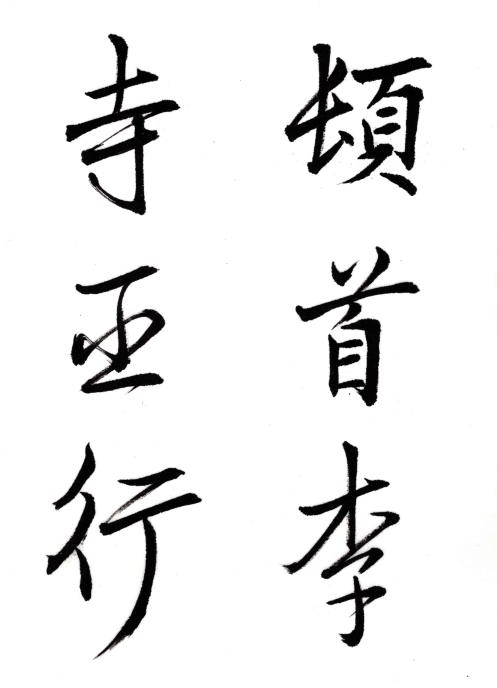 頓首李
寺丞行